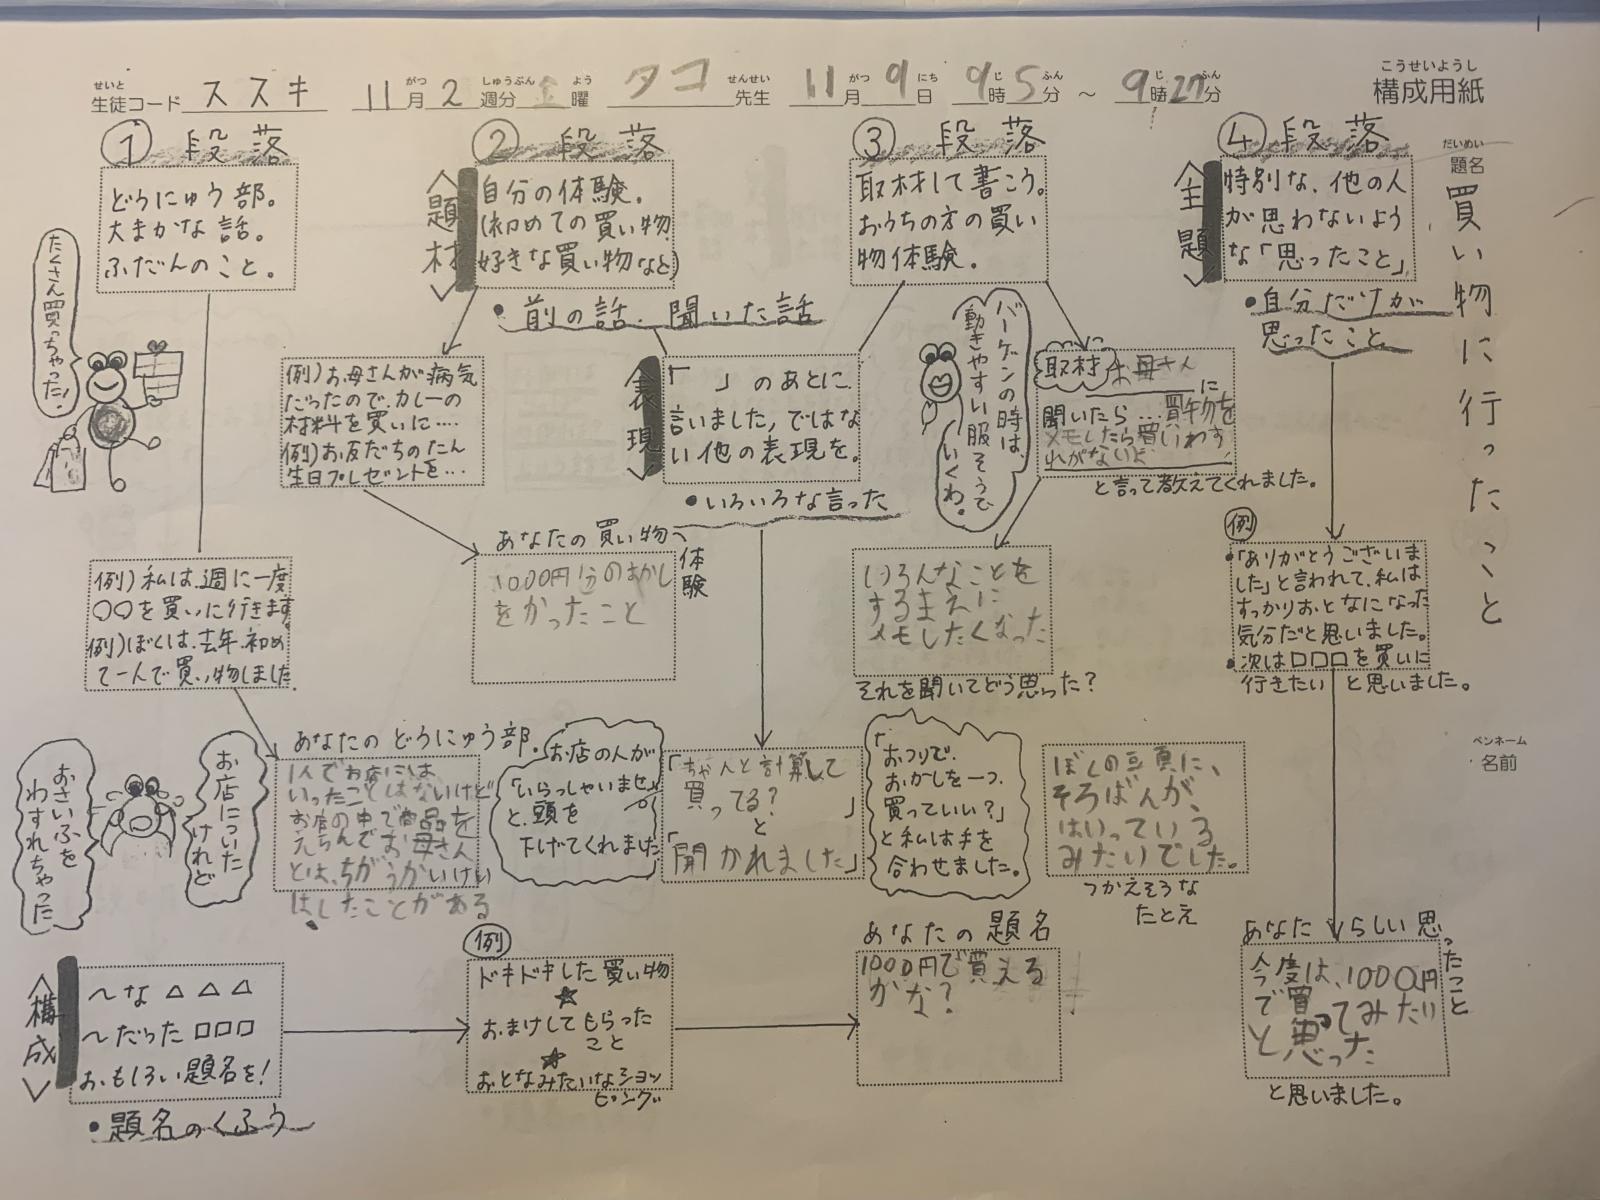 構成用紙
こうせいようし
せいと
生徒コード ススキ 11月2週分 金曜 タコ 先生 11月9日 9時5分 ～ 9時27分
がつ しゅうぶん よう せんせい がつ にち じ ふん じ ふん
だいめい
題名
買い物に行ったこと
ペンネーム
名前
① 段落
どうにゅう部。
大まかな話。
ふだんのこと。
たくさん買っちゃった！
例)私は、週に一度
○○を買いに行きます。
例)ぼくは、去年、初め
て一人で買い物しました。
あなたの どうにゅう部。
1人でお店には
いったことはないけど
お店の中で商品を
えらんでお母さん
とは、ちがうかいけい
はしたことがある
お店についた
けれど
おさいふを
わすれちゃった
② 段落
〈題材〉
自分の体験。
(初めての買い物
好きな買い物など)
・前の話、聞いた話
例)お母さんが病気
だったので、カレーの
材料を買いに‥‥
例)お友だちのたん
生日プレゼントを‥‥
あなたの買い物
体験
1000円分のおかし
をかったこと
〈表現〉
「　」のあとに
言いました,ではな
い他の表現を。
・いろいろな言った
お店の人が
「いらっしゃいませ」
と、頭を
下げてくれました
「ちゃんと計算して
買ってる？
」
と
「聞かれました」
「おつりで、
おかしを一つ、
買っていい？」
と私は手を
合わせました。
③ 段落
取材して書こう。
おうちの方の買い
物体験。
バーゲンの時は、
動きやすい服そうで
いくわ。
取材
お母さん
に
聞いたら…買物を
メモしたら買いわす
れがないよ
と言って教えてくれました。
いろんなことを
するまえに
メモしたくなった
それを聞いてどう思った？
ぼくの頭に、
そろばんが、
はいっている
みたいでした。
つかえそうな
たとえ
④ 段落
〈主題〉
特別な、他の人
が思わないよう
な「思ったこと」
・自分だけが
思ったこと
例
・「ありがとうございま
した」と言われて、私は
すっかりおとなになった
気分だと思いました。
・次は□□□を買いに
行きたい と思いました。
あなたらしい思ったこと
今度は、1000円
で買ってみたい
と思った
と思いました。
〈構成〉
～な △△△
～だった □□□
おもしろい題名を！
・題名のくふう
例
ドキドキした買い物
☆
おまけしてもらった
こと
☆
おとなみたいなショッ
ピング
あなたの題名
1000円で買える
かな？